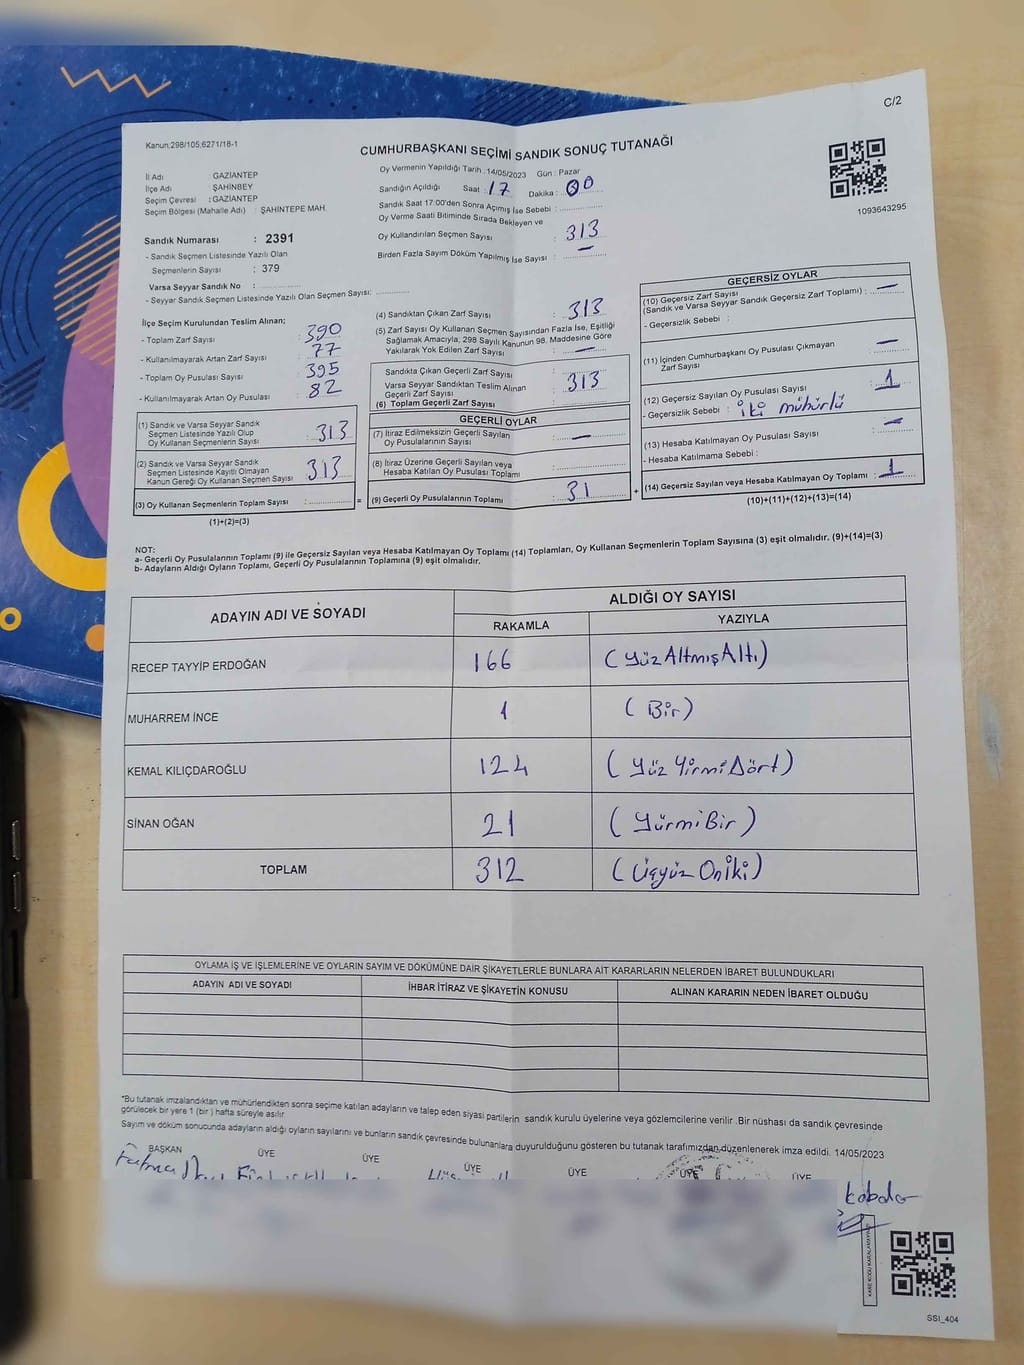 C/2
Kanun;298/105;6271/18-1
CUMHURBAŞKANI SEÇİMİ SANDIK SONUÇ TUTANAĞI
1093643295
İl Adı : GAZİANTEP
İlçe Adı : ŞAHİNBEY
Seçim Çevresi : GAZİANTEP
Seçim Bölgesi (Mahalle Adı) : ŞAHİNTEPE MAH.
Sandık Numarası : 2391
- Sandık Seçmen Listesinde Yazılı Olan
Seçmenlerin Sayısı : 379
Varsa Seyyar Sandık No :
- Seyyar Sandık Seçmen Listesinde Yazılı Olan Seçmen Sayısı:
Oy Vermenin Yapıldığı Tarih : 14/05/2023 Gün : Pazar
Sandığın Açıldığı Saat : 17 Dakika : 00
Sandık Saat 17:00'den Sonra Açımış İse Sebebi :
Oy Verme Saati Bitiminde Sırada Bekleyen ve
Oy Kullandırılan Seçmen Sayısı : 313
Birden Fazla Sayım Döküm Yapılmış İse Sayısı : —
İlçe Seçim Kurulundan Teslim Alınan;
- Toplam Zarf Sayısı : 390
- Kullanılmayarak Artan Zarf Sayısı : 77
- Toplam Oy Pusulası Sayısı : 395
- Kullanılmayarak Artan Oy Pusulası : 82
(1) Sandık ve Varsa Seyyar Sandık
Seçmen Listesinde Yazılı Olup
Oy Kullanan Seçmenlerin Sayısı : 313
(2) Sandık ve Varsa Seyyar Sandık
Seçmen Listesinde Kayıtlı Olmayan
Kanun Gereği Oy Kullanan Seçmen Sayısı : 313
(3) Oy Kullanan Seçmenlerin Toplam Sayısı : =
(1)+(2)=(3)
(4) Sandıktan Çıkan Zarf Sayısı : 313
(5) Zarf Sayısı Oy Kullanan Seçmen Sayısından Fazla İse, Eşitliği
Sağlamak Amacıyla; 298 Sayılı Kanunun 98. Maddesine Göre
Yakılarak Yok Edilen Zarf Sayısı : —
Sandıkta Çıkan Geçerli Zarf Sayısı
Varsa Seyyar Sandıktan Teslim Alınan
Geçerli Zarf Sayısı : 313
(6) Toplam Geçerli Zarf Sayısı
GEÇERLİ OYLAR
(7) İtiraz Edilmeksizin Geçerli Sayılan
Oy Pusulalarının Sayısı : —
(8) İtiraz Üzerine Geçerli Sayılan veya
Hesaba Katılan Oy Pusulası Toplamı :
(9) Geçerli Oy Pusulalarının Toplamı : 31 +
GEÇERSİZ OYLAR
(10) Geçersiz Zarf Sayısı
(Sandık ve Varsa Seyyar Sandık Geçersiz Zarf Toplamı) : —
- Geçersizlik Sebebi :
(11) İçinden Cumhurbaşkanı Oy Pusulası Çıkmayan
Zarf Sayısı : —
(12) Geçersiz Sayılan Oy Pusulası Sayısı : 1
- Geçersizlik Sebebi : iki mühürlü
(13) Hesaba Katılmayan Oy Pusulası Sayısı : —
- Hesaba Katılmama Sebebi :
(14) Geçersiz Sayılan veya Hesaba Katılmayan Oy Toplamı : 1
(10)+(11)+(12)+(13)=(14)
NOT:
a- Geçerli Oy Pusulalarının Toplamı (9) ile Geçersiz Sayılan veya Hesaba Katılmayan Oy Toplamı (14) Toplamları, Oy Kullanan Seçmenlerin Toplam Sayısına (3) eşit olmalıdır. (9)+(14)=(3)
b- Adayların Aldığı Oyların Toplamı, Geçerli Oy Pusulalarının Toplamına (9) eşit olmalıdır.
ADAYIN ADI VE SOYADI ALDIĞI OY SAYISI
RAKAMLA YAZIYLA
RECEP TAYYİP ERDOĞAN 166 (YüzAltmışAltı)
MUHARREM İNCE 1 (Bir)
KEMAL KILIÇDAROĞLU 124 (YüzYirmiDört)
SİNAN OĞAN 21 (YürmiBir)
TOPLAM 312 (ÜçyüzOniki)
OYLAMA İŞ VE İŞLEMLERİNE VE OYLARIN SAYIM VE DÖKÜMÜNE DAİR ŞİKAYETLERLE BUNLARA AİT KARARLARIN NELERDEN İBARET BULUNDUKLARI
ADAYIN ADI VE SOYADI İHBAR İTİRAZ VE ŞİKAYETİN KONUSU ALINAN KARARIN NEDEN İBARET OLDUĞU
"Bu tutanak imzalandıktan ve mühürlendikten sonra seçime katılan adayların ve talep eden siyasi partilerin sandık kurulu üyelerine veya gözlemcilerine verilir .Bir nüshası da sandık çevresinde
görülecek bir yere 1 (bir ) hafta süreyle asılır.
Sayım ve döküm sonucunda adayların aldığı oyların sayılarını ve bunların sandık çevresinde bulunanlara duyurulduğunu gösteren bu tutanak tarafımızdan düzenlenerek imza edildi. 14/05/2023
BAŞKAN ÜYE ÜYE ÜYE ÜYE ÜYE ÜYE
Fatma
SSI_404